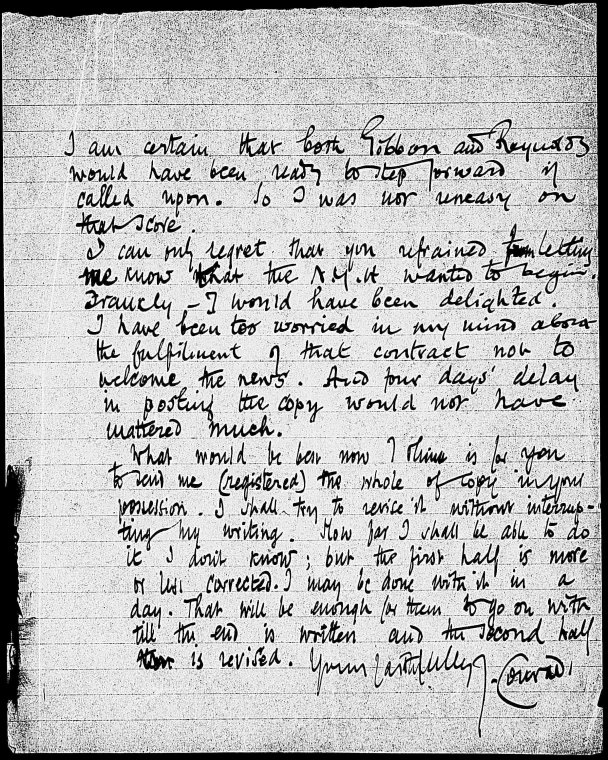 I am certain that both Gibbon and Reynolds
would have been ready to step forward if
called upon. So I was not uneasy on
that score.
I can only regret that you refrained from letting
me know that the N.M. wanted to begin.
Frankly – I would have been delighted.
I have been too worried in my mind about
the fulfilment of that contract not to
welcome the news. And four days' delay
in posting the copy would not have
mattered much.
What would be best now I think is for you
to send me (registered) the whole of copy in your
possession. I shall try to revise it without interrup-
ting my writing. How far I shall be able to do
it I don't know; but the first half is more
or less corrected. I may be done with it in a
day. That will be enough for them to go on with
till the end is written and the second half
is revised. Yours faithfully J. Conrad